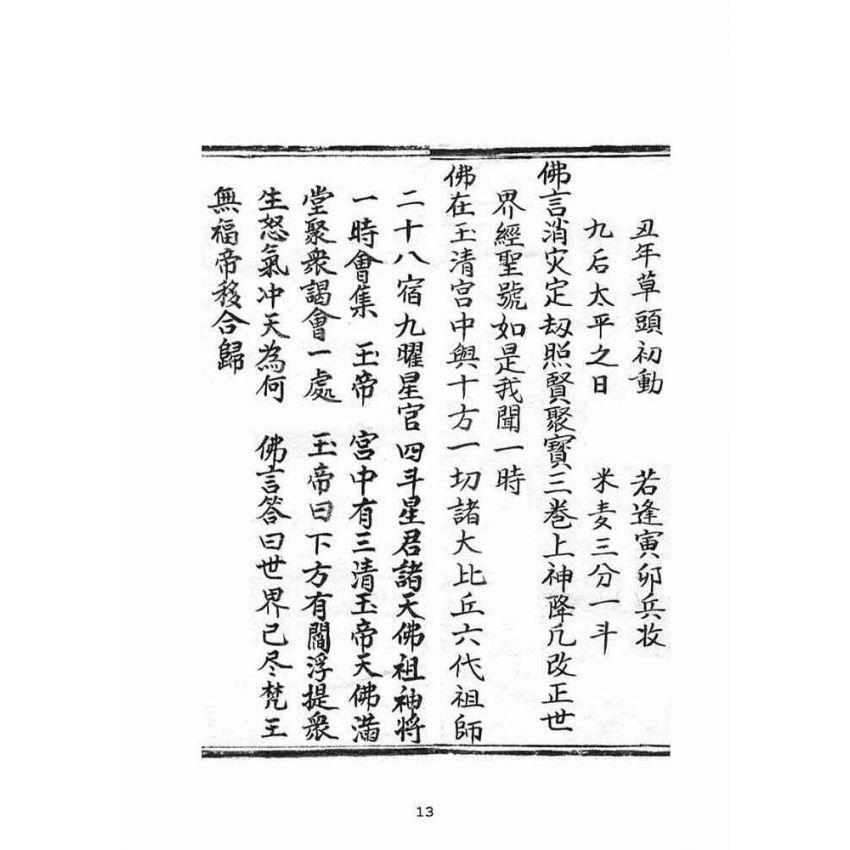 丑年草頭初動 若逢寅卯兵妆
九后太平之日 米麦三分一斗
佛言消灾定劫照賢聚寳三巻上神降凢改正世
界經聖號如是我聞一時
佛在玉清宮中與十方一切諸大比丘六代祖師
二十八宿九曜星官四斗星君諸天佛祖神將
一時會集 玉帝 宮中有三清玉帝天佛滿
堂聚衆謁會一處 玉帝曰下方有閻浮提衆
生怒氣冲天為何 佛言答曰世界已尽梵王
無福帝移合歸
13